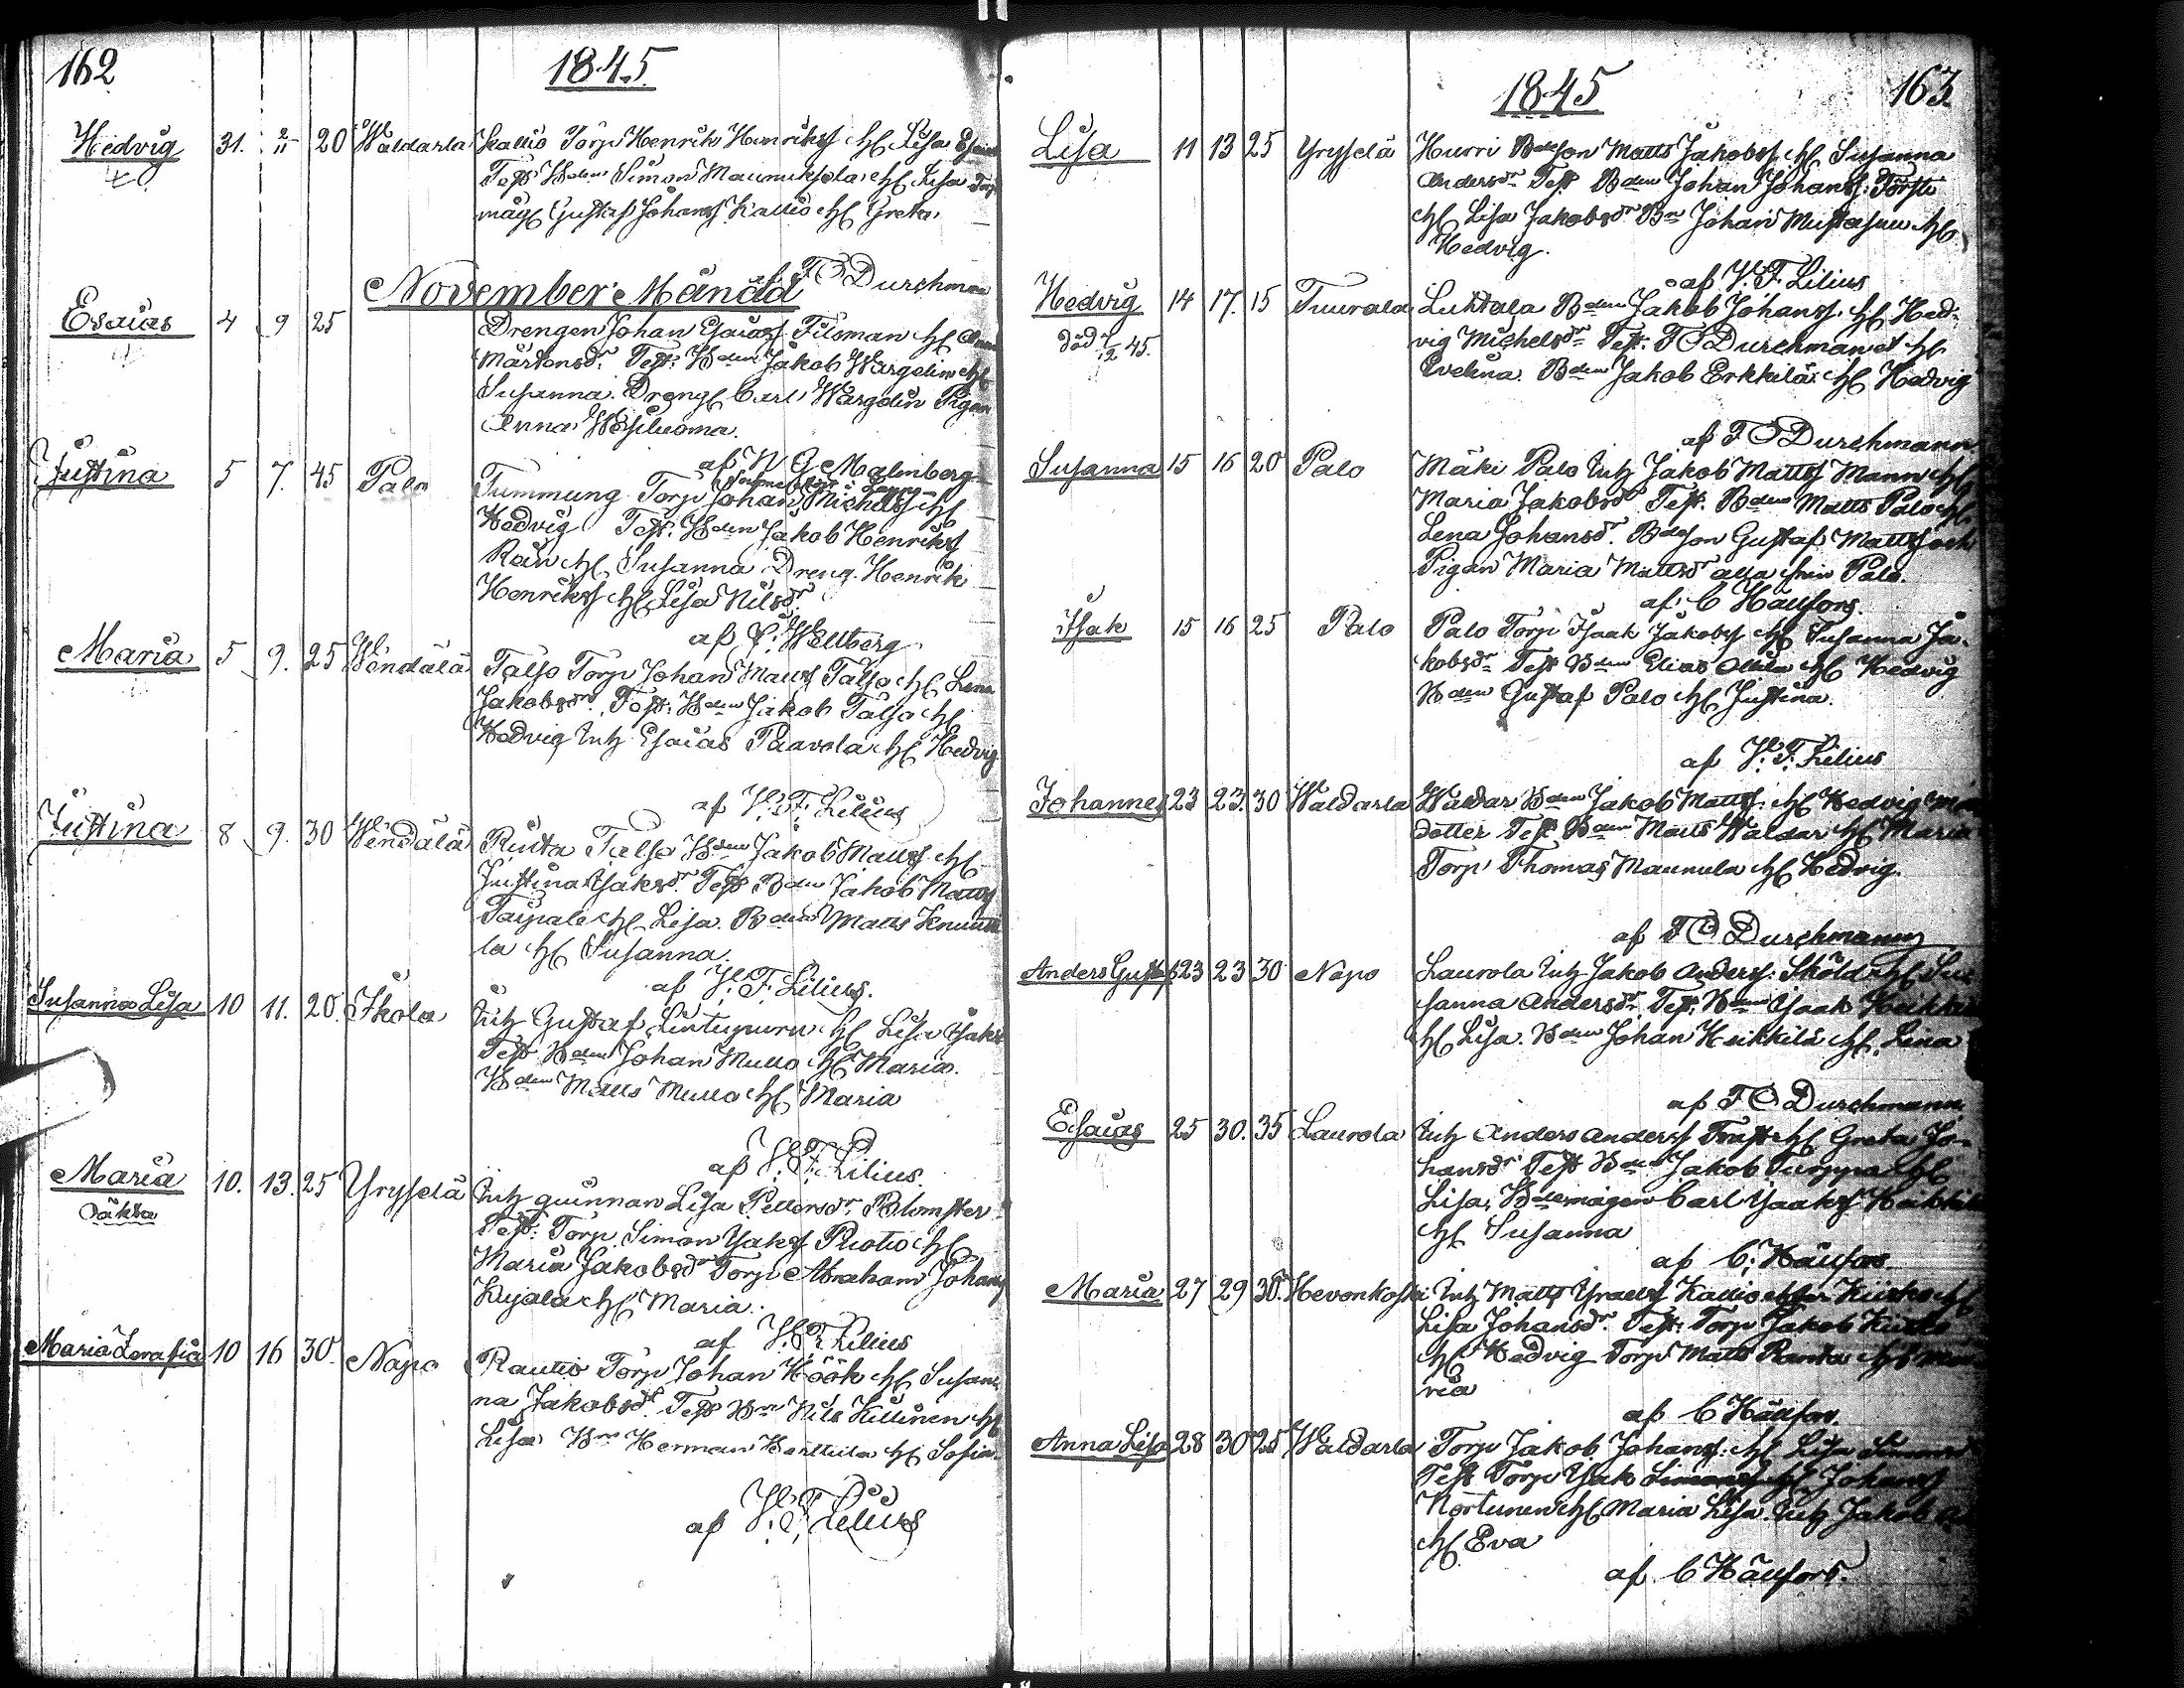 162
1845.
Hedvig 31. 2/11 20 Waldarla Kallio Torp Henrik Henrikss H Lisa
Test Bden Simon Maunuksela H Lisa Torp
mågs Gustaf Johans Kallio H Greta.
af F O Durchman
November Månad
Esaias 4 9 25 Drengen Johan Esaias Filsman H Anna
Mårtensdr Test: Bden Jakob Wargelin H
Susanna. Drengs Carl Wargelin Pigan
Anna
af N G Malmberg
Justina 5 7. 45 Palo Tummung Torp Johan Michelss H
Hedvig Test. Bden Jakob Henrikss
H Susanna Dreng. Henrik
Henrikss H Lisa Nilsdr
af Wellberg
Maria 5 9. 25 Wendälä Talso Torp Johan Matts Talso H Lena
Jakobsdr. Test: Bden Jakob Talso H
Hedvig Inh Esaias Paavola H Hedvig
af V. F. Lilius
Justina 8 9. 30 Wendälä Talso Bden Jakob Matts H
Justina Isaksdr. Test Bden Jakob Matts
Taipale H Lisa. Bden Matts Knuutti
la H Susanna.
af V. F. Lilius.
Susanna Lisa 10 11. 20. Ikola Inh Gustaf H Lisa Isaks
Test Bden Johan Mullo H Maria.
Bden Matts Mullo H Maria
af V. F. Lilius.
Maria 10. 13. 25 Yryselä Inh quinnan Lisa Pettersdr. Blomster
Oäkta
Test: Torp. Simon Isaks H
Maria Jakobsdr Torp Abraham Johans
Kujala H Maria.
af V. F. Lilius
Maria Serafia 10 16 30. Napo Rautio Torp Johan Höök H Susan
na Jakobsdr. Test Bn Nils Killinen H
Lisa Bn Herman Karttila H Sofia.
af V. F. Lilius
1845
163
Lisa 11 13 25 Yryselä Hurri Bdeson Matts Jakobss H Susanna
Andersdr Test Bden Johan Johans Törsti
H Lisa Jakobsdr Bn Johan H
Hedvig.
af V. F. Lilius
Hedvig 14 17. 15 Tuurala Luhtala Bden Jakob Johans. H Hed-
död 7/12 45.
vig Michelsdr Test: F O Durchman H
Evelina. Bden Jakob Erkkilä H Hedvig
af F O Durchmann
Susanna 15 16 20 Palo Mäki Palo Inh Jakob Mattss Mann H
Maria Jakobsdr Test. Bden Matts Palo H
Lena Johansdr. Bdeson Gustaf Mattss och
Pigan Maria Mattsdr alla från Palo.
af C Hällfors.
Isak 15 16 25 Palo Palo Torp Isaak Jakobs H Susanna Ja-
kobsdr Test Bden Elias H Hedvig
Bden Gustaf Palo H Justina.
af V. F. Lilius
Johannes 23 23. 30 Waldarla Waldar Bden Jakob Matts. H Hedvig
dotter Test Bden Matts Waldar H Maria
Torp Thomas Maunula H Hedvig.
af F O Durchmann
Anders Gustaf 23 23 30 Napo Laurola Inh Jakob Anderss. Sköld H Su
sanna Andersdr. Test. Bden Isaak
H Lisa. Bden Johan Heikkilä H Lena
af F O Durchmann
Esaias 25 30. 35 Laurola Inh Anders Anderss Trast H Greta Jo-
hansdr Test Bden Jakob Turppa H
Lisa, Bdemågen Carl Isaaks
H Susanna
af C. Hällfors.
Maria 27 29 30. Hevonkoski Inh Matts Kallio H
Lisa Johansdr. Test: Torp Jakob
H Hedvig Torp Matts Ranta H Ma
ria
af C Hällfors.
Anna Lisa 28 30 25 Waldarla Torp Jakob Johans: H Lisa
Test Torp Isak Johans
Nortunen H Maria Lisa. Inh Jakob
H Eva
af C Hällfors.